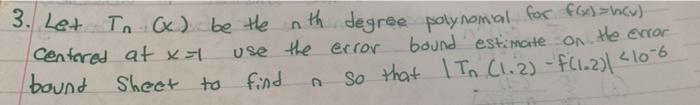 3. Let Tn (x) be the nth degree polynomal for f(x)=ln(x)
centered at x=1 use the error bound estimate on the error
bound Sheet to find n so that |Tn (1.2) - f(1.2)| < 10^-6